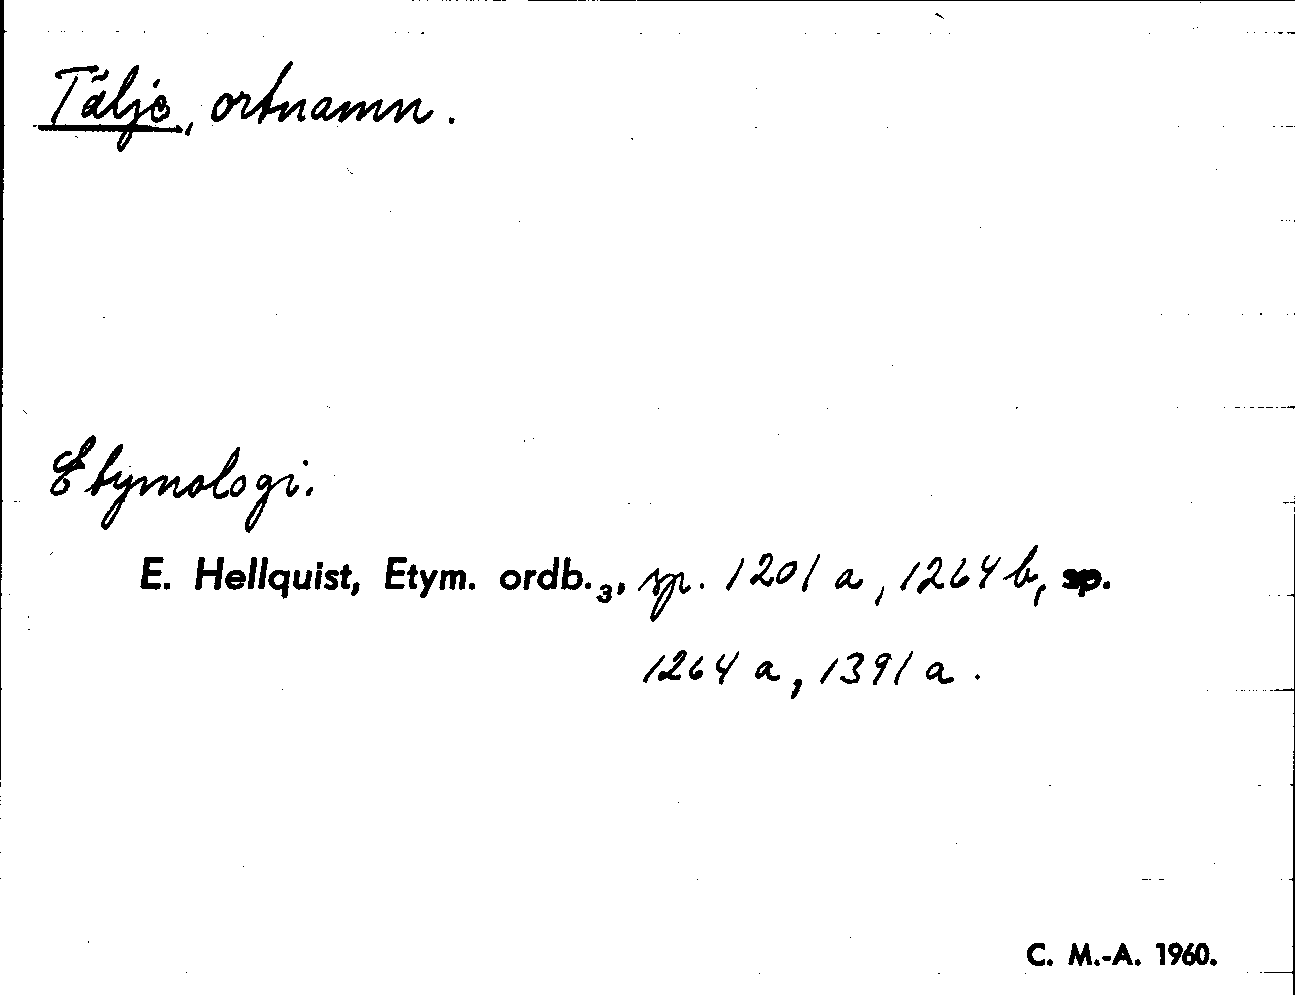 Tälje, ortnamn.
Etymologi.
E. Hellquist, Etym. ordb.₃, sp. 1201 a, 1264 b, sp.
1264 a, 1391 a.
C. M.-A. 1960.